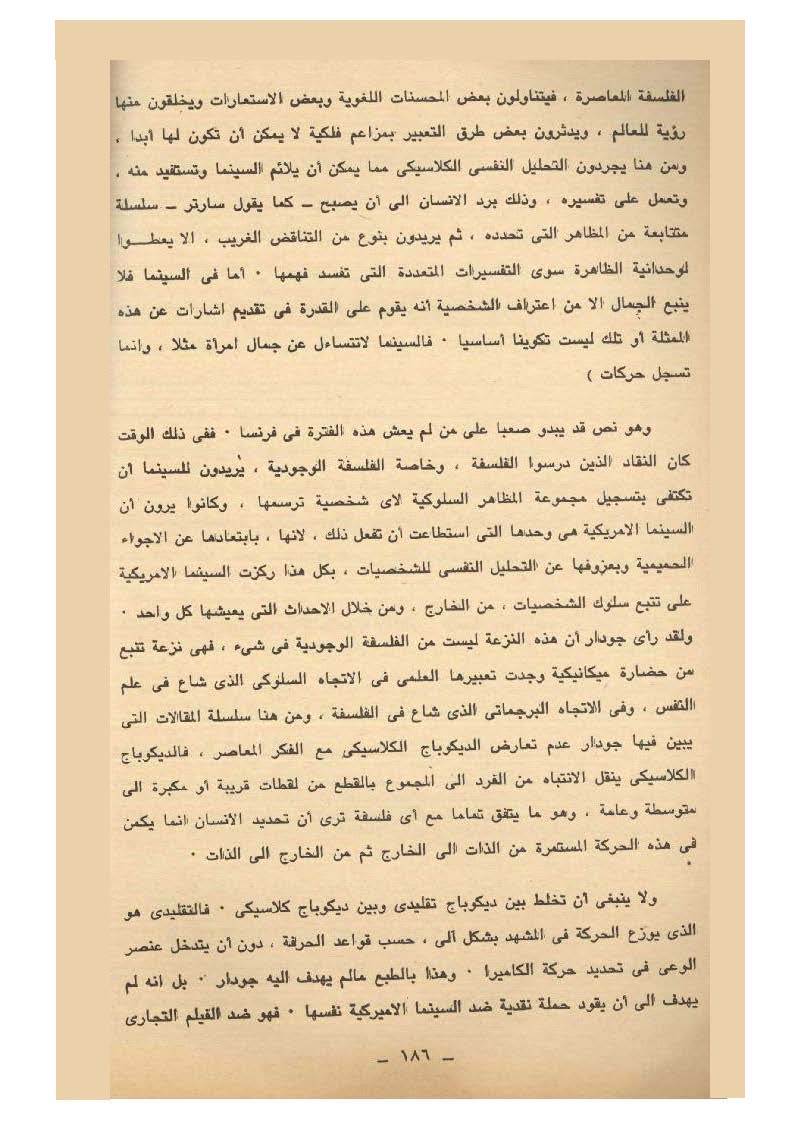 الفلسفة المعاصرة ، فيتناولون بعض المحسنات اللغوية وبعض الاستعارات ويخلقون منها
رؤية للعالم ، ويدثرون بعض طرق التعبير بمزاعم فلكية لا يمكن أن تكون لها أبدا ،
ومن هنا يجردون التحليل النفسى الكلاسيكى مما يمكن أن يلائم السينما وتستفيد منه ،
وتعمل على تفسيره ، وذلك برد الانسان الى أن يصبح ــ كما يقول سارتر ــ سلسلة
متتابعة من المظاهر التى تحدده ، ثم يريدون بنوع من التناقض الغريب ، الا يعطــوا
لوحدانية الظاهرة سوى التفسيرات المتعددة التى تفسد فهمها ٠ أما فى السينما فلا
ينبع الجمال الا من اعتراف الشخصية أنه يقوم على القدرة فى تقديم اشارات عن هذه
الممثلة أو تلك ليست تكوينا أساسيا ٠ فالسينما لاتتساءل عن جمال امرأة مثلا ، وانما
تسجل حركات )
وهو نص قد يبدو صعبا على من لم يعش هذه الفترة فى فرنسا ٠ ففى ذلك الوقت
كان النقاد الذين درسوا الفلسفة ، وخاصة الفلسفة الوجودية ، يريدون للسينما أن
تكتفى بتسجيل مجموعة المظاهر السلوكية لاى شخصية ترسمها ، وكانوا يرون أن
السينما الامريكية هى وحدها التى استطاعت أن تفعل ذلك ، لانها ، بابتعادها عن الاجواء
الحميمية وبعزوفها عن التحليل النفسى للشخصيات ، بكل هذا ركزت السينما الامريكية
على تتبع سلوك الشخصيات ، من الخارج ، ومن خلال الاحداث التى يعيشها كل واحد ٠
ولقد رأى جودار أن هذه النزعة ليست من الفلسفة الوجودية فى شىء ، فهى نزعة تنبع
من حضارة ميكانيكية وجدت تعبيرها العلمى فى الاتجاه السلوكى الذى شاع فى علم
النفس ، وفى الاتجاه البرجماتى الذى شاع فى الفلسفة ، ومن هنا سلسلة المقالات التى
يبين فيها جودار عدم تعارض الديكوباج الكلاسيكى مع الفكر المعاصر ، فالديكوباج
الكلاسيكى ينقل الانتباه من الفرد الى المجموع بالقطع من لقطات قريبة أو مكبرة الى
متوسطة وعامة ، وهو ما يتفق تماما مع أى فلسفة ترى أن تحديد الانسان انما يكمن
فى هذه الحركة المستمرة من الذات الى الخارج ثم من الخارج الى الذات ٠
ولا ينبغى أن تخلط بين ديكوباج تقليدى وبين ديكوباج كلاسيكى ٠ فالتقليدى هو
الذى يوزع الحركة فى المشهد بشكل آلى ، حسب قواعد الحرفة ، دون أن يتدخل عنصر
الوعى فى تحديد حركة الكاميرا ٠ وهذا بالطبع مالم يهدف اليه جودار ٠ بل انه لم
يهدف الى أن يقود حملة نقدية ضد السينما الاميركية نفسها ٠ فهو ضد الفيلم التجارى
ــ ١٨٦ ــ